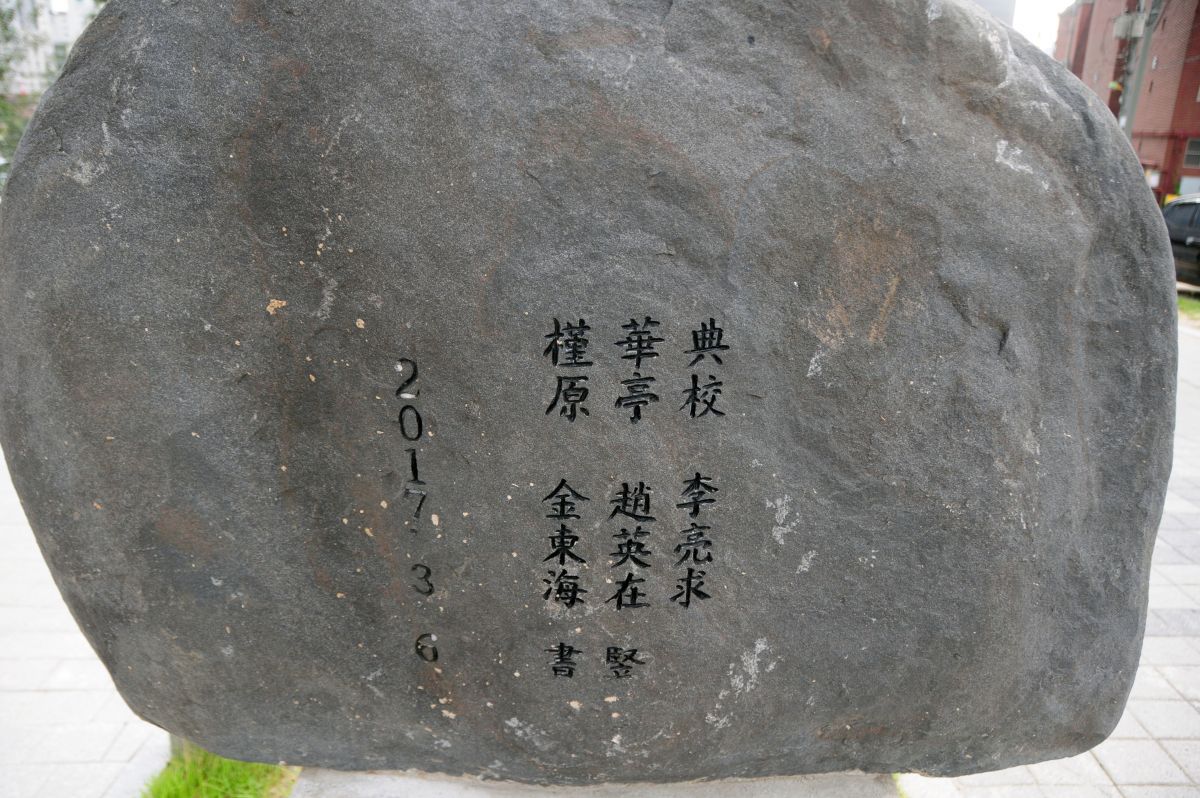 典校 李亮求
華亭 趙英在 竪
槿原 金東海 書
2017 3 6